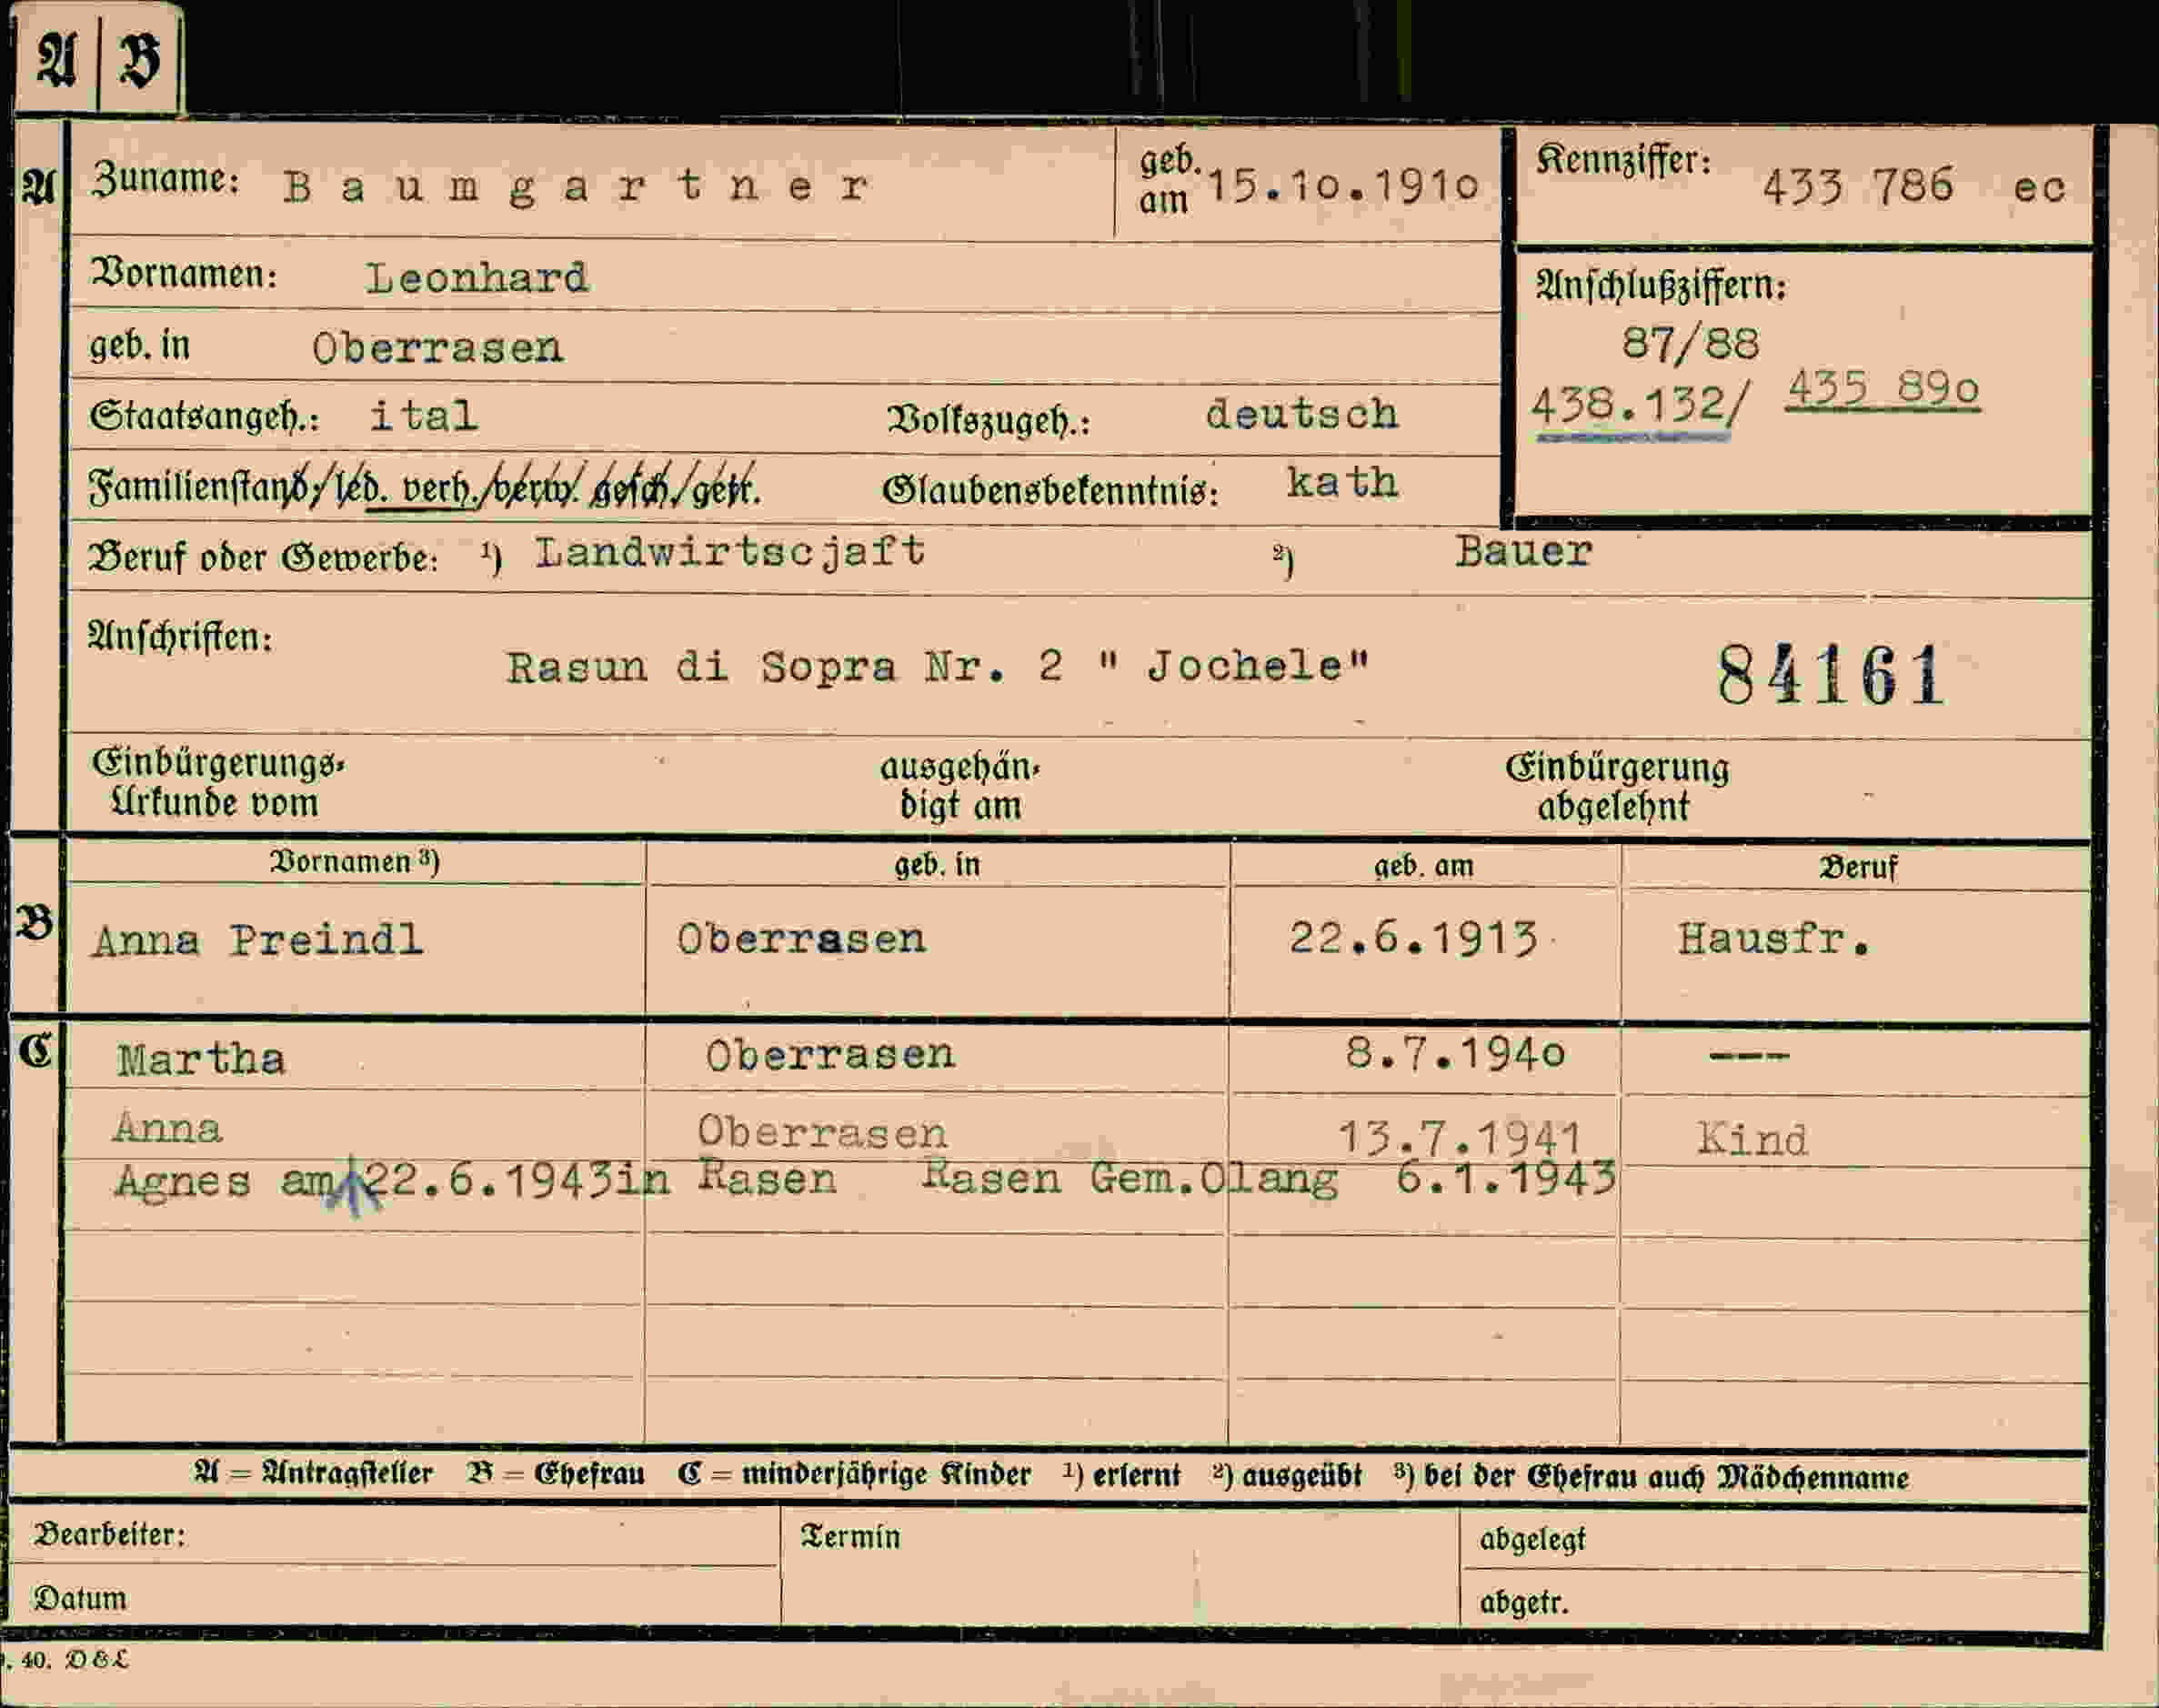 A B
A Zuname: Baumgartner geb. am 15.10.1910 Kennziffer: 433 786 ec
Vornamen: Leonhard
Anschlußziffern:
geb. in Oberrasen 87/88
Staatsangeh.: ital Volkszugeh.: deutsch 438.132/ 435 890
Familienstand: led. verh. verw. gesch. getr. Glaubensbekenntnis: kath
Beruf oder Gewerbe: 1) Landwirtscjaft 2) Bauer
Anschriften:
Rasun di Sopra Nr. 2 " Jochele" 84161
Einbürgerungs- ausgehän- Einbürgerung
Urkunde vom digt am abgelehnt
Vornamen 3) geb. in geb. am Beruf
B Anna Preindl Oberrasen 22.6.1913 Hausfr.
C Martha Oberrasen 8.7.1940 ---
Anna Oberrasen 13.7.1941 Kind
Agnes am 22.6.1943in Rasen Rasen Gem.Olang 6.1.1943
A = Antragsteller B = Ehefrau C = minderjährige Kinder 1) erlernt 2) ausgeübt 3) bei der Ehefrau auch Mädchenname
Bearbeiter: Termin abgelegt
Datum abgetr.
. 40. D & L